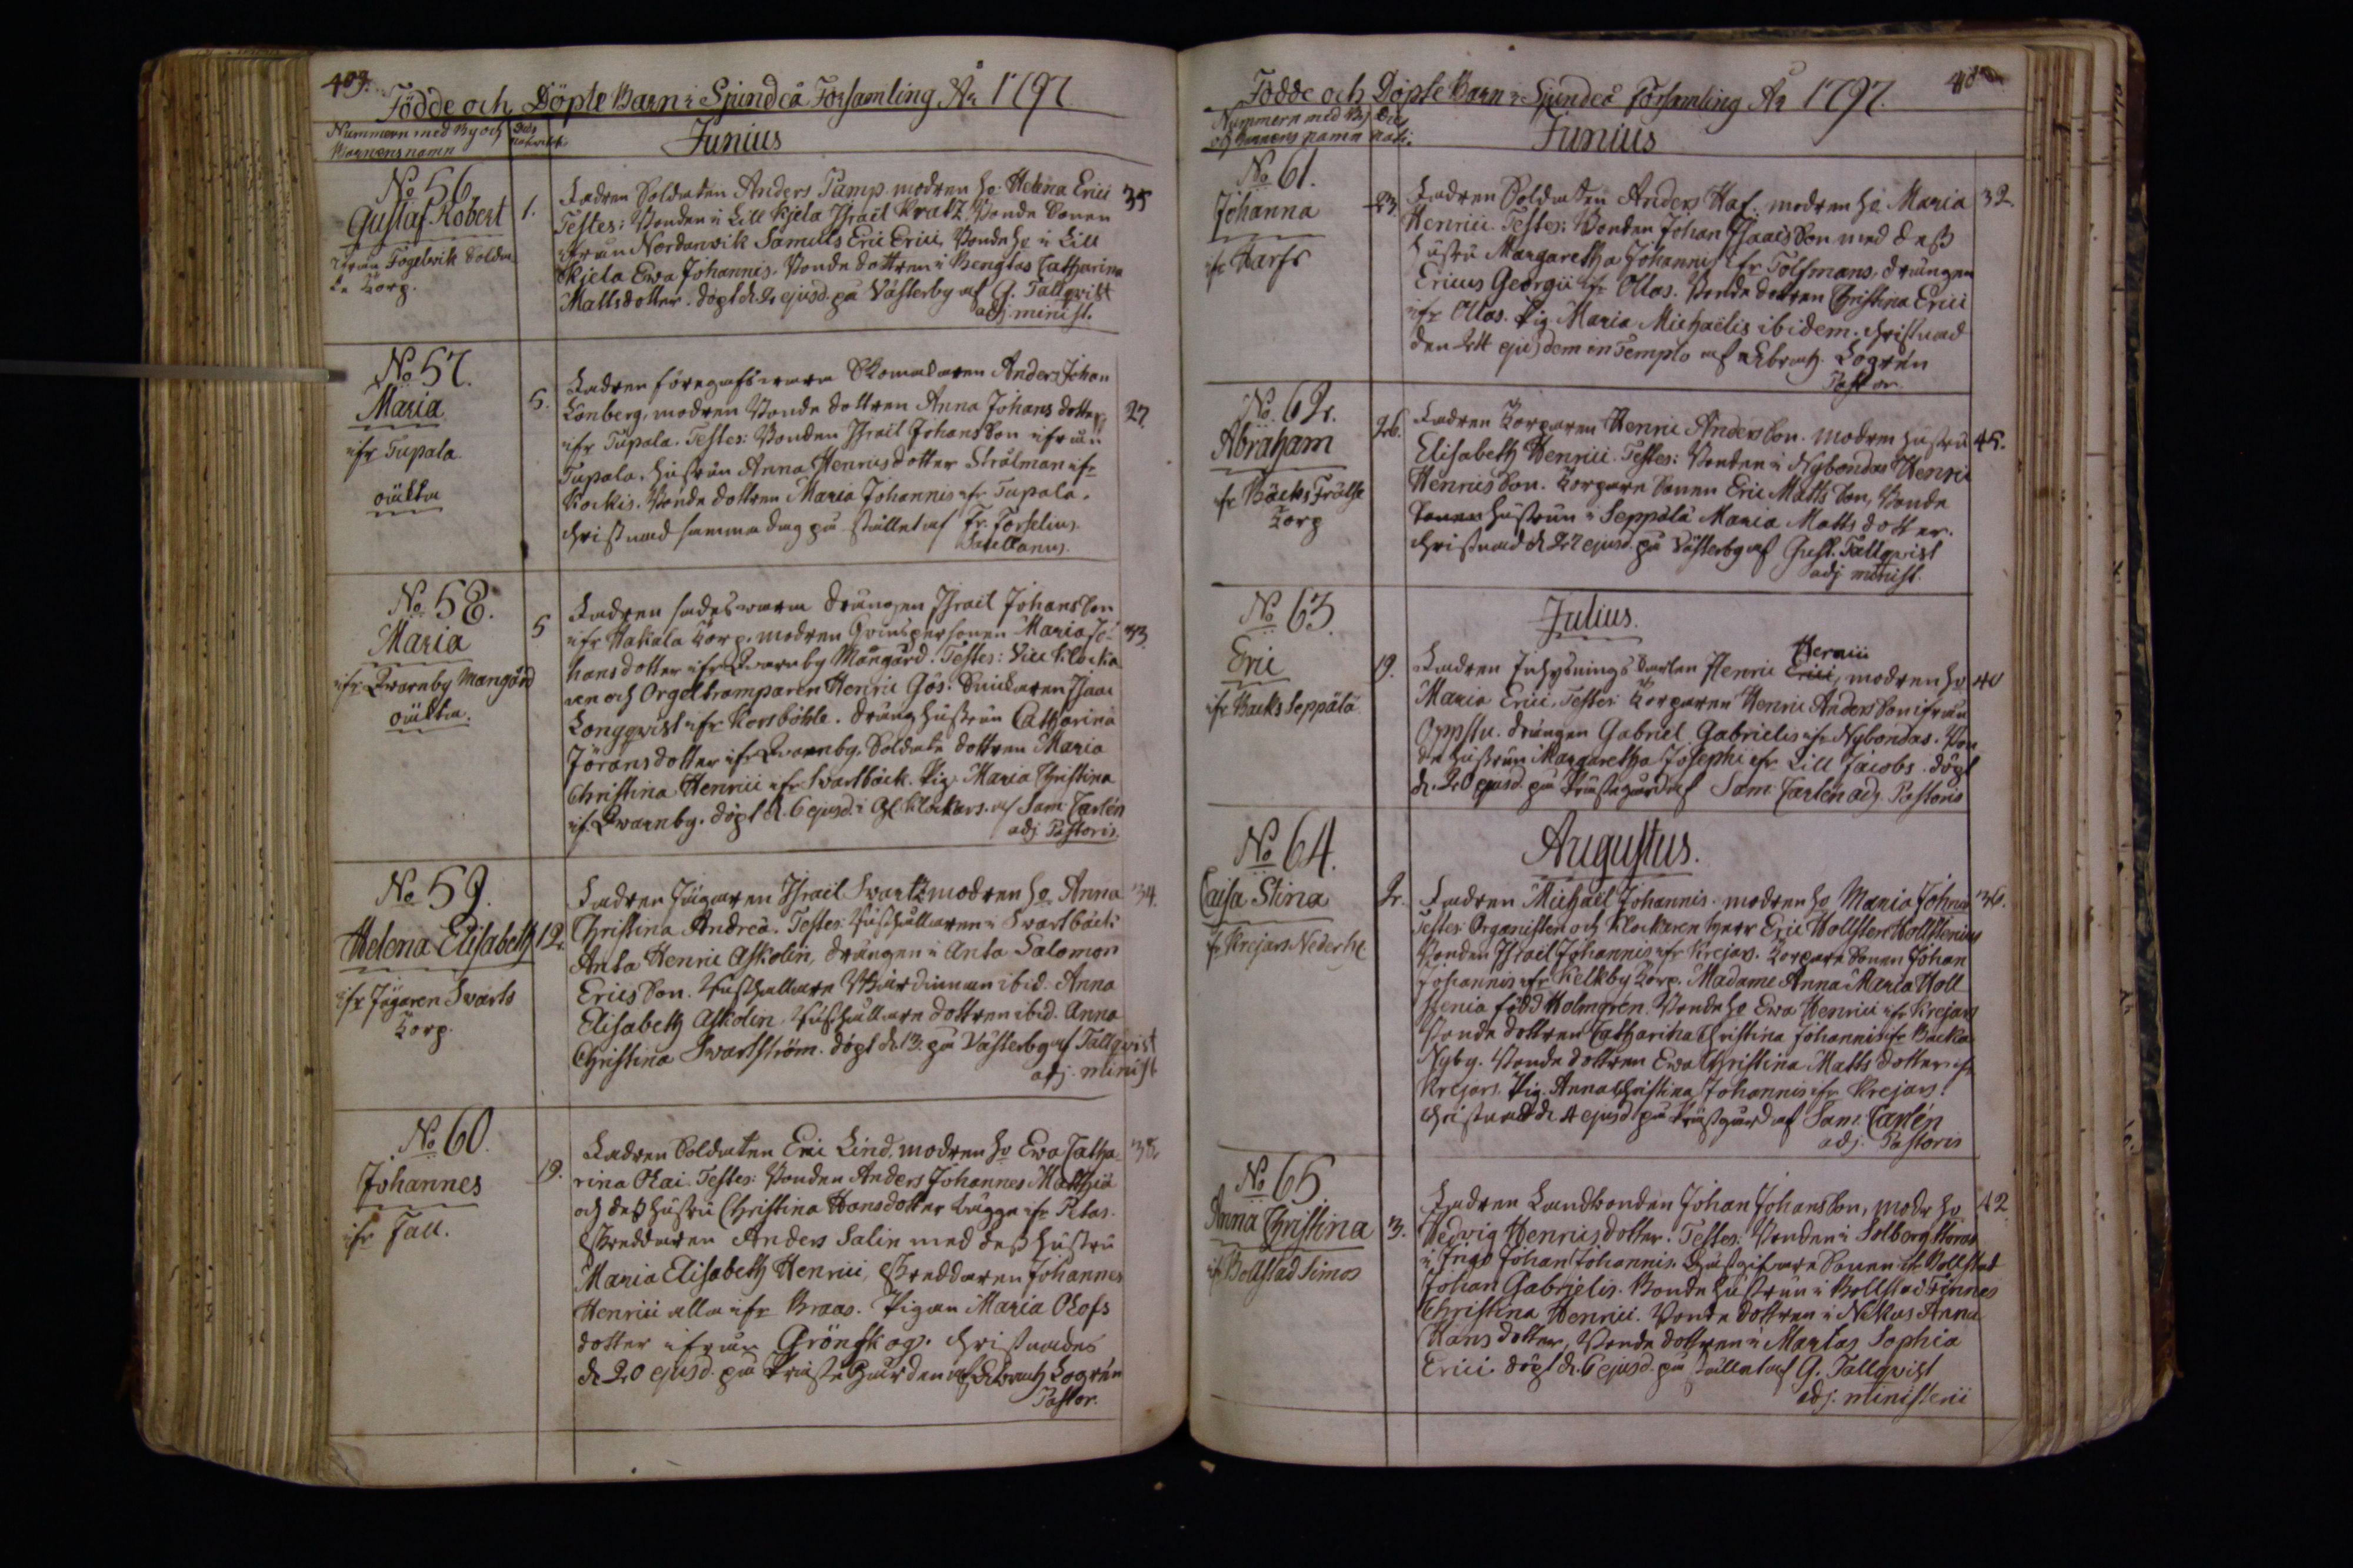 409.
Födde och Döpte Barn i Sjundeå Församling År 1797
Nummern med By och
Barnens namn
Junius
No 56.
Gustaf Robert
ifrån Fogelwik Solda-
te Torp.
1.
Fadren Soldaten Anders Tamp. modren Ho: Helena Erici
Testes: Bonden i Lill Kjela Israel Kratz, Bonde Sonen
ifrån Nordanwik Samuels Eric Erici, Bonde Ho i Lill
Kjela Ewa Johannis, Bonde dottren i Bengtas Catharina
Mattsdotter. döpt d. 2 ejusd. på Västerby af G. Tallqvist
adj. minist.
35
No 57.
Maria
ifr Tupala
oäkta
5.
Fadren föregifswara Skomakaren Anders Johan
Lönberg, modren Bonde dottren Anna Johans dotter
ifr Tupala. Testes: Bonden Israel Johans Son ifrån
Tupala, Hustrun Anna Henricsdotter Strålman ifr
Kockis. Bonde dottren Maria Johannis ifr Tupala.
Christnad samma dag på stället af Fr. Forselius
Sacellanus.
27
No 58.
Maria
ifr Qwarnby Mangård
oäkta.
5
Fadren sades wara drängen Israel Johans Son
ifr Hakala Torp. modren Qwinspersonen Maria Jo-
hansdotter ifr Qwarnby Mångård. Testes: Vice Klocka
ren och Orgeltramparen Henric Gös. Snickaren Isaac
Longqwist ifr Korsböhle. dräng Hustrun Catharina
Jöransdotter ifr Qwarnby. Soldate dottren Maria
Christina Henrici ifr Swartbäck. Pig. Maria Christina
if. Qwarnby. döpt d. 6 ejusd. i Gl. Klockars. af Sam: Carlén
adj Pastoris.
33
No 59.
Helena Elisabeth
ifr Jägaren Swarts
Torp.
12.
Fadren Jägaren Israel Swartz modren Ho Anna
Christina Andreæ. Testes: Rusthållaren i Swartbäck
Anta Henric Askolin, drängen i Anta Salomon
Ericsson. Rusthållare Wärdinnan ibid. Anna
Elisabeth Askolin. Rusthållare dottren ibid. Anna
Christina Swartström. döpt d. 13. på Västerby af Tallqvist
adj. minist
34.
No 60.
Johannes
ifr Tall.
19.
Fadren Soldaten Eric Lind, modren Ho Ewa Catha-
rina Olai. Testes: Bonden Anders Johannes Matthiæ
och dess Hustru Christina Hansdotter Lugge ifr
Skreddaren Anders Salin med dess Hustru
Maria Elisabeth Henrici, Skreddaren Johannes
Henrici alla ifr Braas. Pigan Maria Olofs
dotter ifrån Grönskog. Christnades
d. 20 ejusd. på Prästegården af Logrén
Pastor.
38.
Födde och Döpte Barn i Sjundeå Församling År 1797.
Nummern med By
och Barnens namn
Junius
No 61.
Johanna
ifr Harfs
23.
Fadren Soldaten Anders Haf. modren Ho Maria
Henrici. Testes: Bonden Johan Isaacs Son med dess
Hustru Margaretha Johannis ifr Tolfmans, drängen
Ericus Georgii ifr Ollas. Bonde dottren Christina Erici
ifr Ollas. Pig Maria Michaëlis ibidem. Christnad
den 24 ejusdem in Templo af Logrén
Pastor.
32.
No 62.
Abraham
fr Bäcks Frälse
Torp
26.
Fadren Torparen Henric Anders Son. modren Hustru
Elisabeth Henrici. Testes: Bonden i Nybondas Henric
Henrics Son. Torpare Sonen Eric Matts Son, Bonde
Sonen Hustrun i Seppälä Maria Matts dotter.
Christnad d. 27 ejusd. på Västerby af Gust. Tallqwist
adj minist.
45.
No 63.
Eric
ifr Backs Seppälä
19.
Julius.
Henrici
Fadren Inhysings karlen Henric Erici, modren Ho
Maria Erici, Testes: Torparen Henric Anders Son ifrån
Oppstu. drängen Gabriel Gabrielis ifr Nybondas. Bon
de Hustrun Margaretha Josephi ifr Lill Jacobs. döpt
d. 20 ejusd. på Prästegård af Sam: Carlén adj. Pastoris
40
No 64.
Caisa Stina
fr Krejars Nederhe
2.
Augustus.
Fadren Michaël Johannis. modren Ho Maria Johans
Testes: Organisten och Klockaren Herr Eric Hollsten Hollstenius
Bonden Israel Johannis ifr Krejars. Torpare Sonen Johan
Johannis ifr Kelkby Torp. Madame Anna Maria Holl
stenia född Holmgrén. Bonde Ho Ewa Henrici ifr Krejars
Bonde dottren Catharina Christina Johannis ifr Backa
Nyby. Bonde dottren Ewa Christina Matts dotter ifr
Krejars. Pig. Anna Christina Johannis ifr Krejars.
Christnad d. 4 ejusd. på Prästgård af Sam: Carlén
adj. Pastoris
36.
No 65.
Anna Christina
ifr Bollstad Simos
3.
Fadren Landbonden Johan Johans Son, modr Ho
Hedvig Henricsdotter. Testes: Bonden i Solberg
i Ingo Johan Johannis. Gästgifware Sonen ifr Bollstad
Johan Gabrielis. Bonde Hustrun i Bollstad Finnes
Christina Henrici. Bonde dottren i Nickus Anna
Hans dotter, Bonde dottren i Martas Sophia
Erici. döpt d. 6 ejusd. på stället af G. Tallqvist
adj. ministerii
42